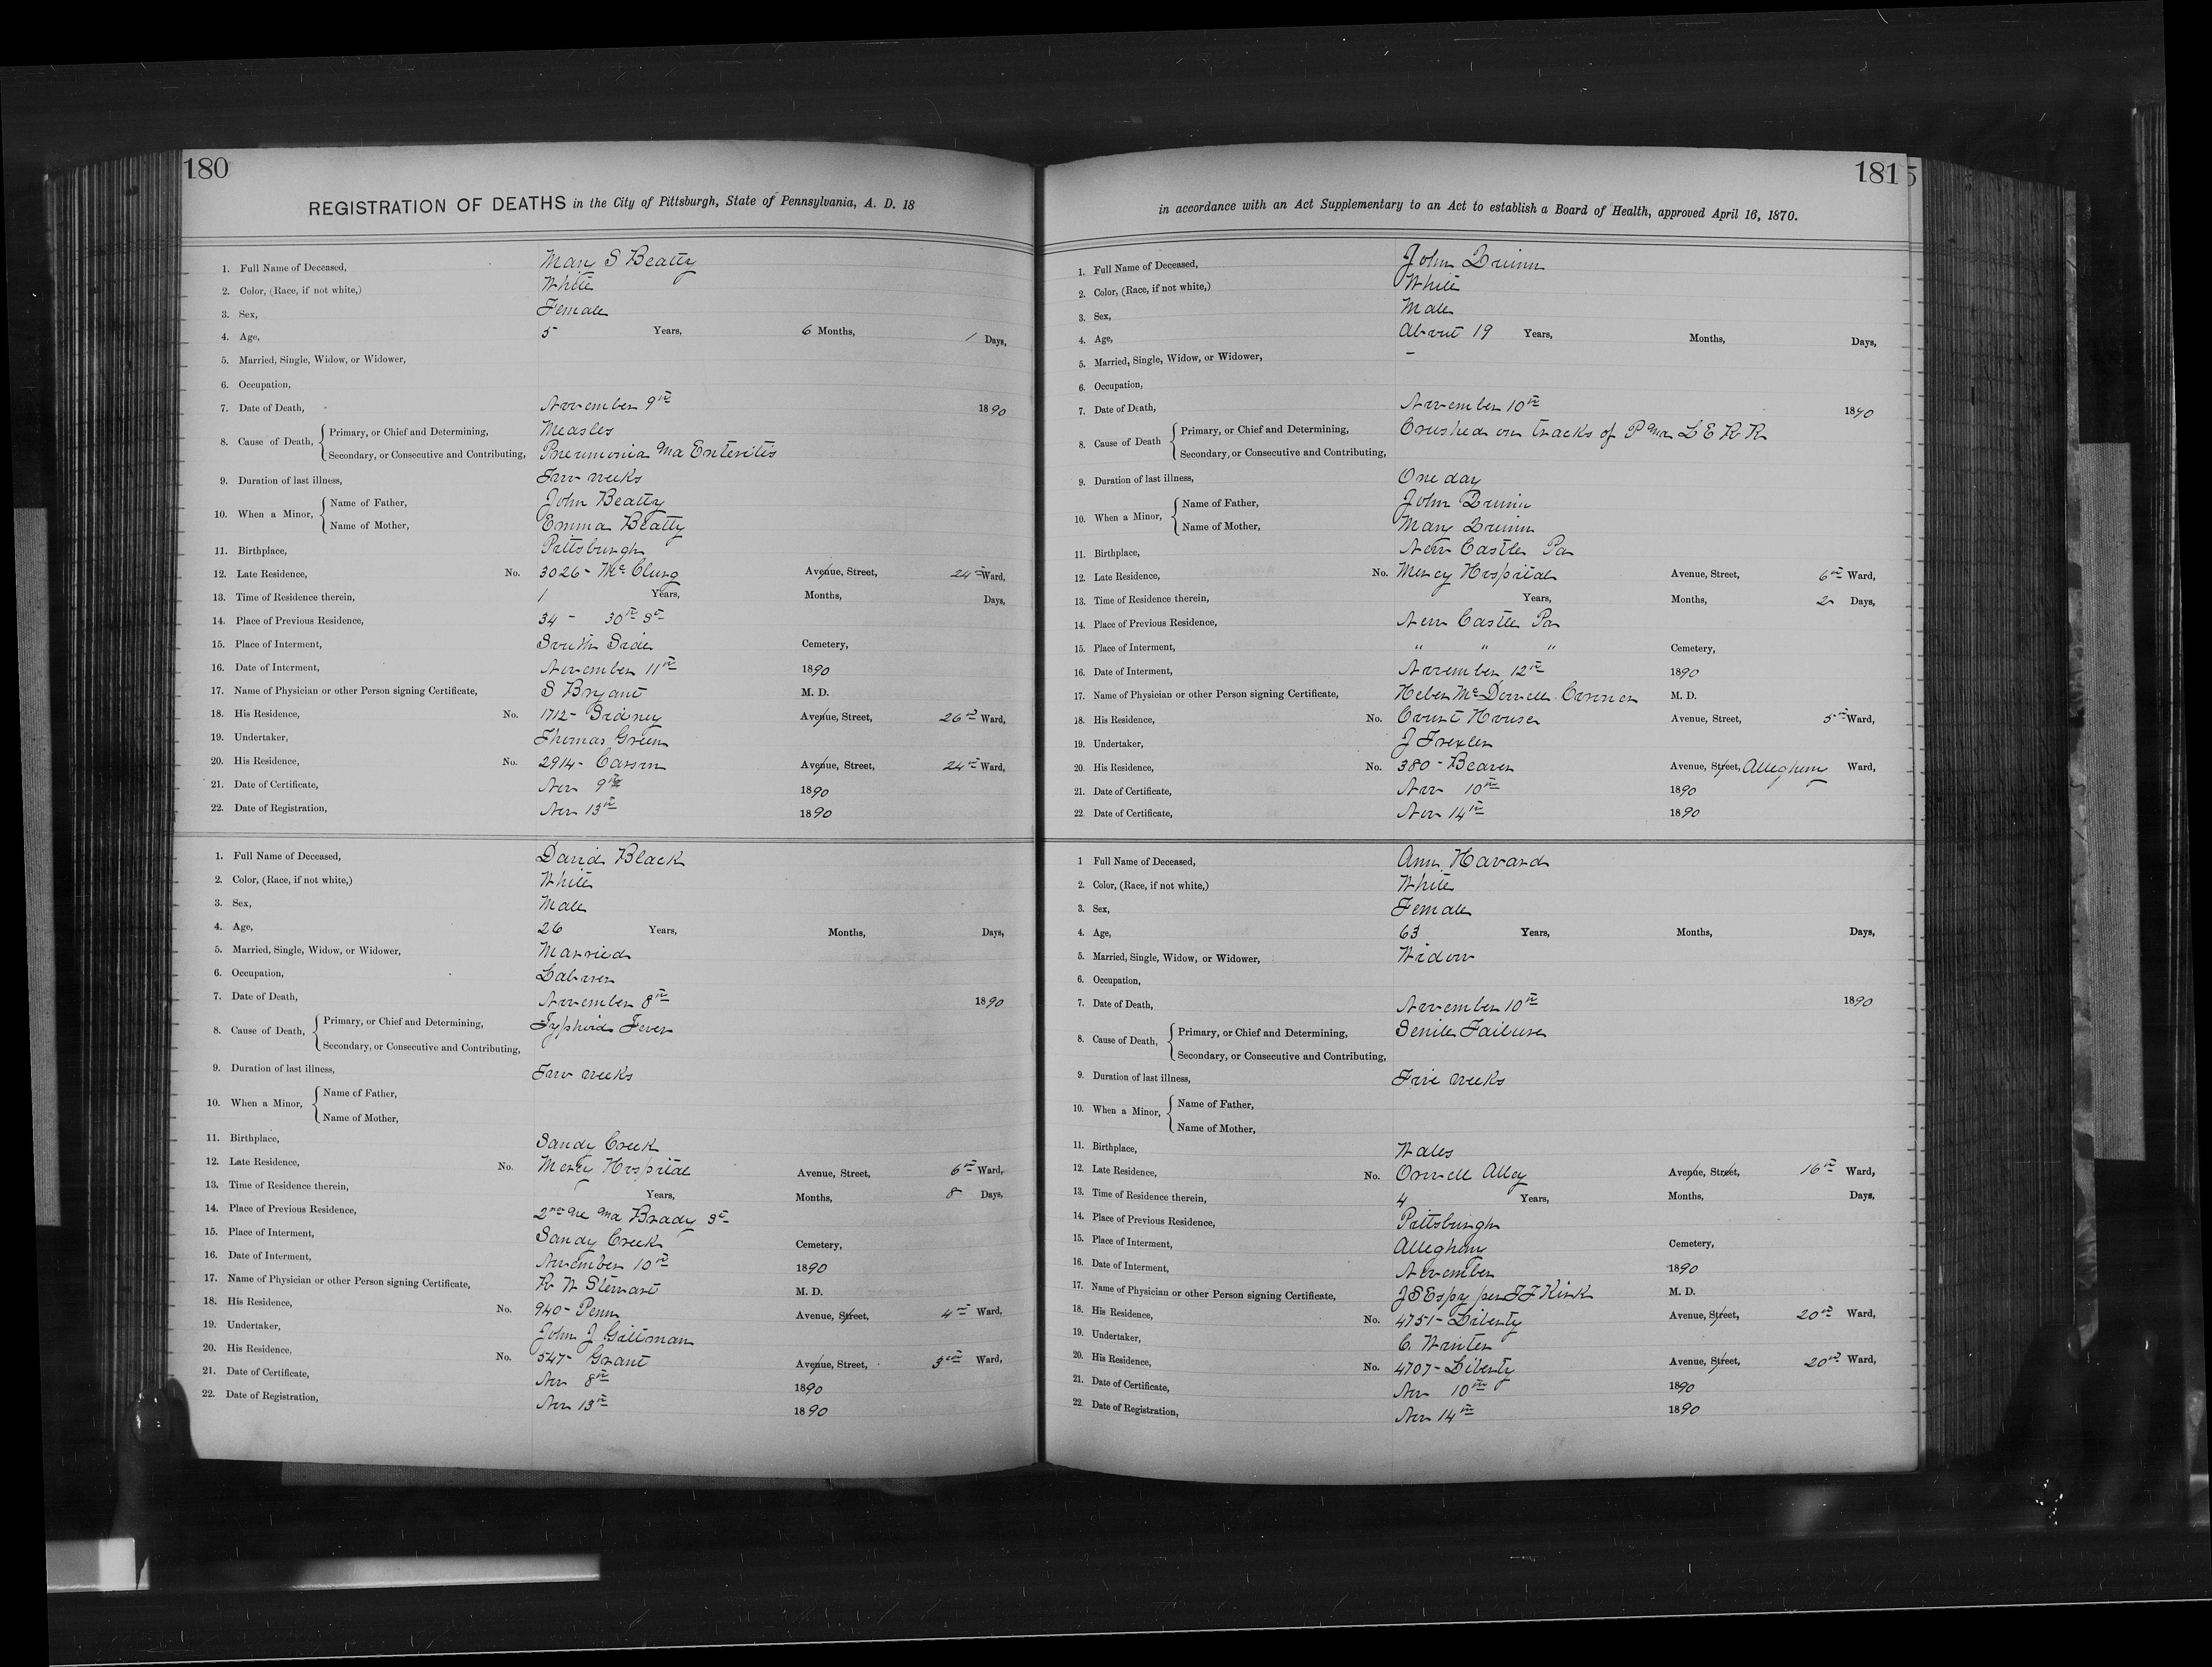 180
REGISTRATION OF DEATHS in the City of Pittsburgh, State of Pennsylvania, A. D. 18
1. Full Name of Deceased, Mary S Beatty
2. Color, (Race, if not white,) White
3. Sex, Female
4. Age, 5 Years, 6 Months, 1 Days,
5. Married, Single, Widow, or Widower,
6. Occupation,
7. Date of Death, November 9th 1890
8. Cause of Death, Primary, or Chief and Determining, Measles
Secondary, or Consecutive and Contributing, Pneumonia and Enteritis
9. Duration of last illness, Two weeks
10. When a Minor, Name of Father, John Beatty
Name of Mother, Emma Beatty
11. Birthplace, Pittsburgh
12. Late Residence, No. 3026 - McClurg Avenue, Street, 24th Ward,
13. Time of Residence therein, 1 Years, Months, Days,
14. Place of Previous Residence, 34 - 30th St
15. Place of Interment, South Side Cemetery,
16. Date of Interment, November 11th 1890
17. Name of Physician or other Person signing Certificate, S Bryant M. D.
18. His Residence, No. 1712 - Sidney Avenue, Street, 26th Ward,
19. Undertaker, Thomas Green
20. His Residence, No. 2914 - Carson Avenue, Street, 24th Ward,
21. Date of Certificate, Nov 9th 1890
22. Date of Registration, Nov 13th 1890
1. Full Name of Deceased, David Black
2. Color, (Race, if not white,) White
3. Sex, Male
4. Age, 26 Years, Months, Days,
5. Married, Single, Widow, or Widower, Married
6. Occupation, Laborer
7. Date of Death, November 8th 1890
8. Cause of Death, Primary, or Chief and Determining, Typhoid Fever
Secondary, or Consecutive and Contributing,
9. Duration of last illness, Two weeks
10. When a Minor, Name of Father,
Name of Mother,
11. Birthplace, Sandy Creek
12. Late Residence, No. Mercy Hospital Avenue, Street, 6th Ward,
13. Time of Residence therein, Years, Months, 8 Days,
14. Place of Previous Residence, 2nd Ave and Brady St
15. Place of Interment, Sandy Creek Cemetery,
16. Date of Interment, November 10th 1890
17. Name of Physician or other Person signing Certificate, R W Stewart M. D.
18. His Residence, No. 940 - Penn Avenue, Street, 4th Ward,
19. Undertaker, John J Gillman
20. His Residence, No. 547 - Grant Avenue, Street, 3rd Ward,
21. Date of Certificate, Nov 8th 1890
22. Date of Registration, Nov 13th 1890
181
5
in accordance with an Act Supplementary to an Act to establish a Board of Health, approved April 16, 1870.
1. Full Name of Deceased, John
2. Color, (Race, if not white,) White
3. Sex, Male
4. Age, About 19 Years, Months, Days,
5. Married, Single, Widow, or Widower, -
6. Occupation,
7. Date of Death, November 10th 1890
8. Cause of Death Primary, or Chief and Determining, Crushed on tracks of P and L E R R
Secondary, or Consecutive and Contributing,
9. Duration of last illness, One day
10. When a Minor, Name of Father, John
Name of Mother, Mary
11. Birthplace, New Castle Pa
12. Late Residence, No. Mercy Hospital Avenue, Street, 6th Ward,
13. Time of Residence therein, Years, Months, 2 Days,
14. Place of Previous Residence, New Castle Pa
15. Place of Interment, " " " Cemetery,
16. Date of Interment, November 12th 1890
17. Name of Physician or other Person signing Certificate, Heber McDowell Coroner M. D.
18. His Residence, No. Court House Avenue, Street, 5th Ward,
19. Undertaker, J Trexler
20. His Residence, No. 380 - Beaver Avenue, Street, Allegheny Ward,
21. Date of Certificate, Nov 10th 1890
22 Date of Certificate, Nov 14th 1890
1 Full Name of Deceased, Ann Havard
2. Color, (Race, if not white,) White
3. Sex, Female
4. Age, 63 Years, Months, Days,
5. Married, Single, Widow, or Widower, Widow
6. Occupation,
7. Date of Death, November 10th 1890
8. Cause of Death, Primary, or Chief and Determining, Senile Failure
Secondary, or Consecutive and Contributing,
9. Duration of last illness, Five weeks
10. When a Minor, Name of Father,
Name of Mother,
11. Birthplace, Wales
12. Late Residence, No. Orwell Alley Avenue, Street, 16th Ward,
13. Time of Residence therein, 4 Years, Months, Days,
14. Place of Previous Residence, Pittsburgh
15. Place of Interment, Allegheny Cemetery,
16. Date of Interment, November 1890
17. Name of Physician or other Person signing Certificate, J S Espy per T F Kirk M. D.
18. His Residence, No. 4751 - Liberty Avenue, Street, 20th Ward,
19. Undertaker, C. Winter
20. His Residence, No. 4707 - Liberty Avenue, Street, 20th Ward,
21. Date of Certificate, Nov 10th 1890
22 Date of Registration, Nov 14th 1890